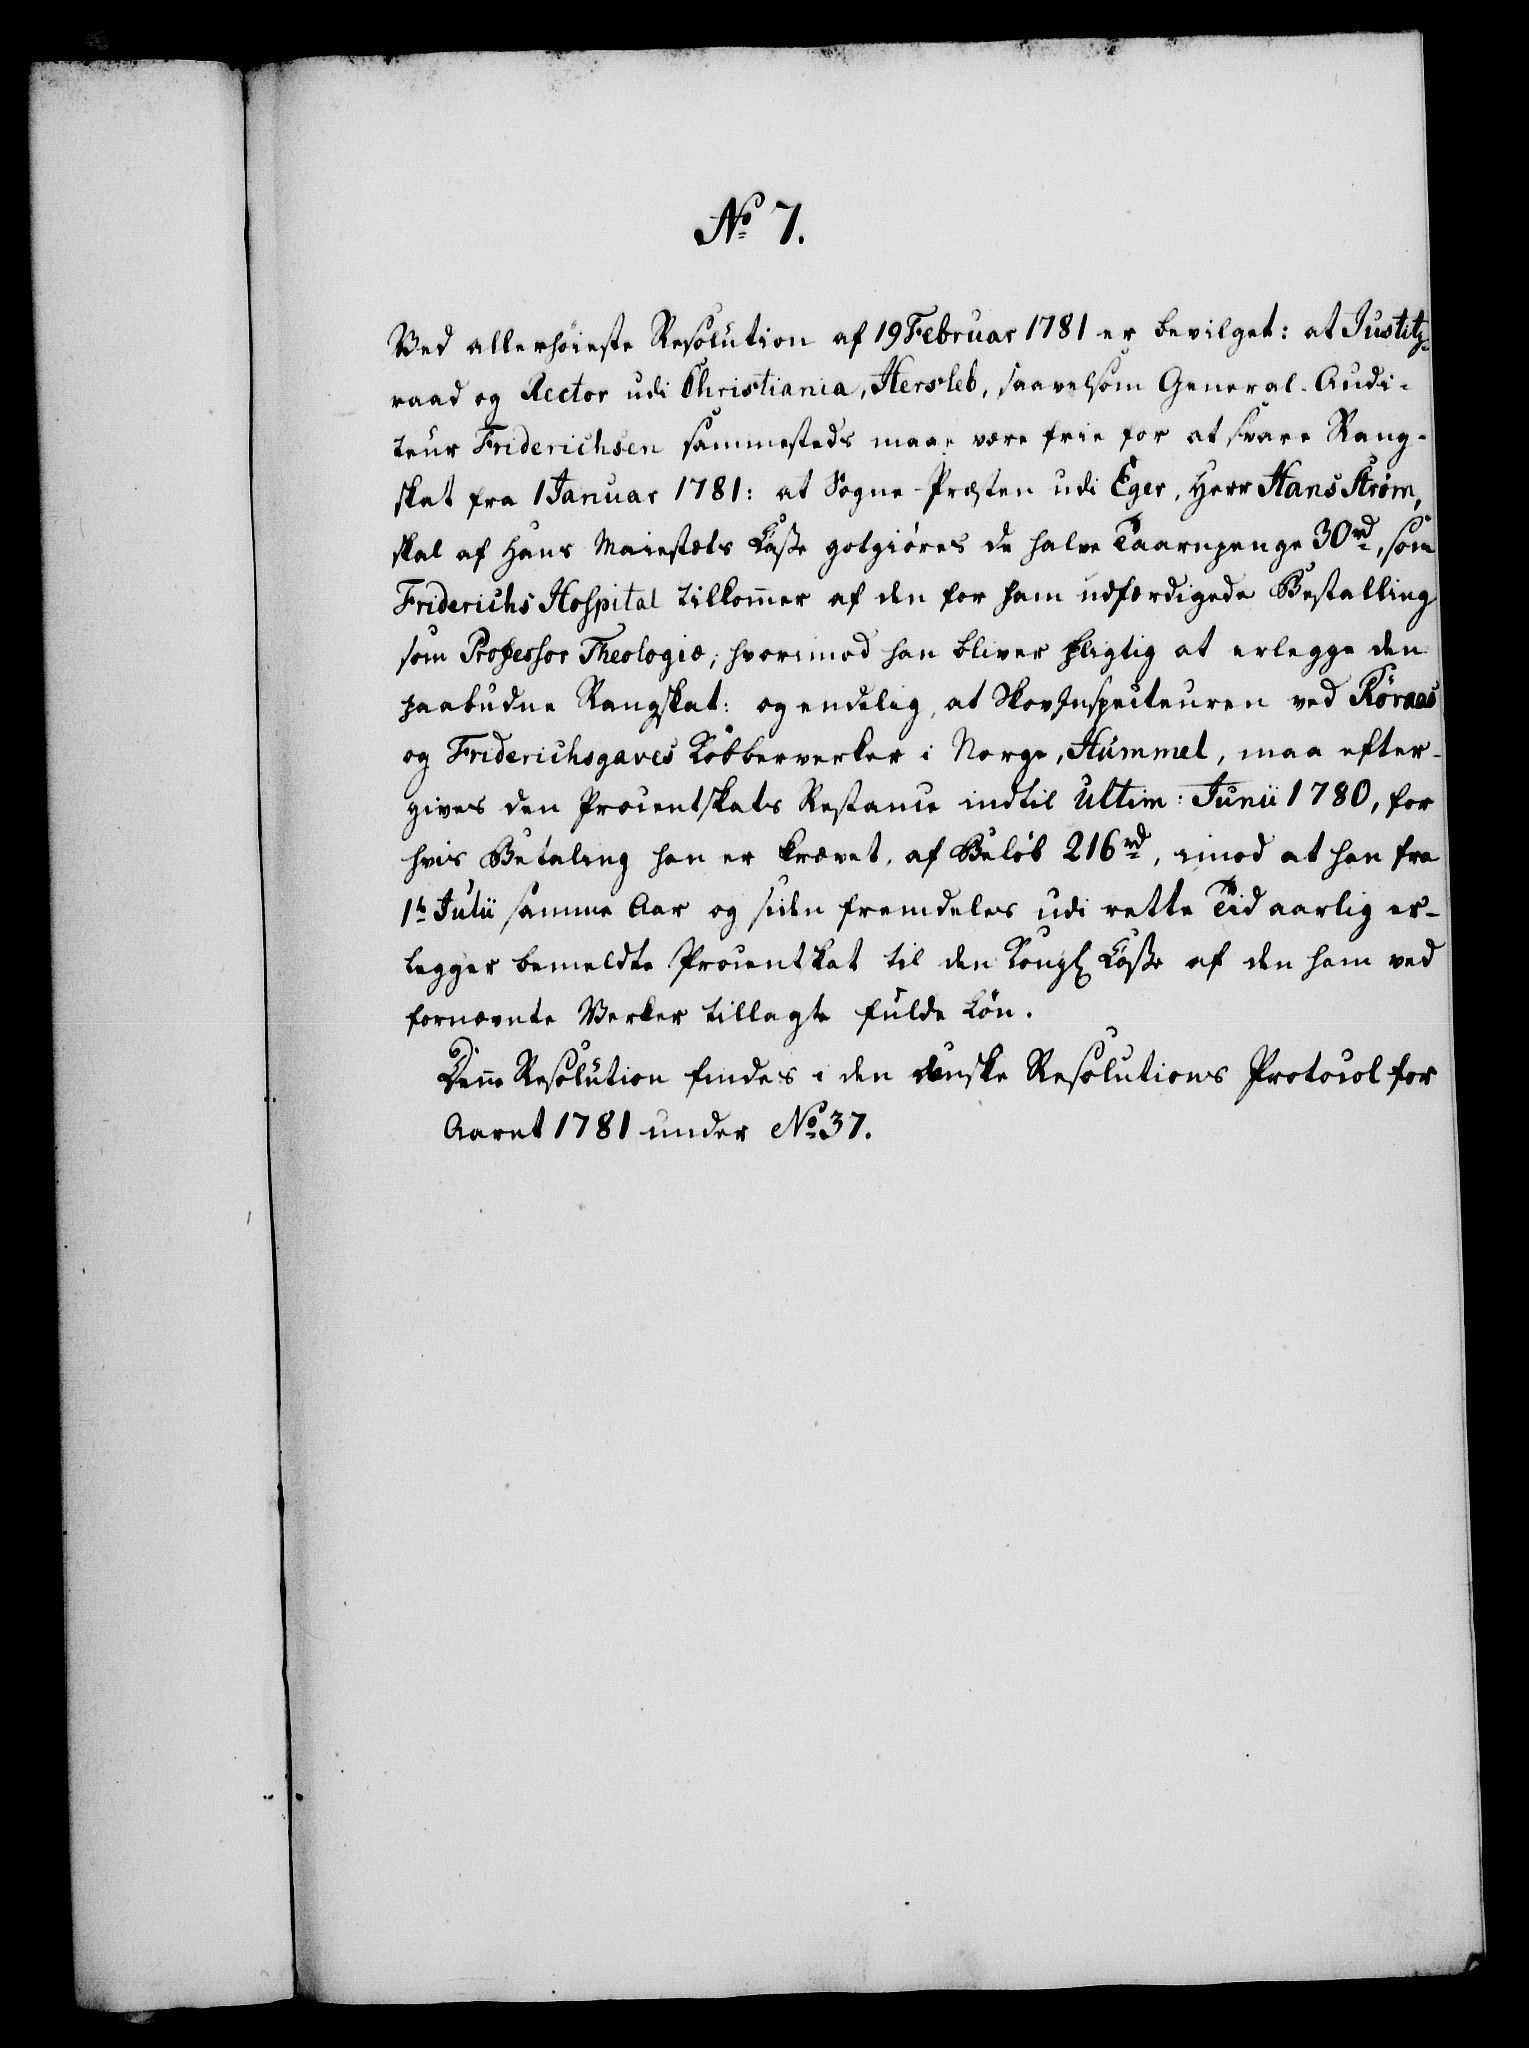 No 7.
Ved allerhøieste Resolution af 19 Februar 1781 er bevilget: at Justitz-
raad og Rector udi Christiania, Hersleb, saavelsom General-Audi-
teur Friderichsen sammesteds maae være frie for at svare Rang-
skat fra 1 Januar 1781: at Sogne-Præsten udi Eger, Herr Hans Strøm,
skal af Hans Maiestæts Casse gotgiøres de halve Taarnpenge 30 rd, som
Friderichs Hospital tilkom̅er af den for ham udfærdigede Bestalling
som Professor Theologiæ; hvorimod han bliver pligtig at erlegge den
paabudne Rangskat: og endelig, at Skov Inspecteuren ved Røraas
og Friderichsgaves Kobberverker i Norge, Hummel, maa efter-
gives den Procentskats Restance indtil Ultim: Junii 1780, for
hvis Betaling han er krævet, af Beløb 216 rd, imod at han fra
1t Julii samme Aar og siden fremdeles udi rette Tid aarlig er-
legger bemeldte Procentskat til den Kongl Casse af den ham ved
fornævnte Verker tillagte fulde Løn.
Den̅e Resolution findes i den danske Resolutions Protocol for
Aaret 1781 under No 37.